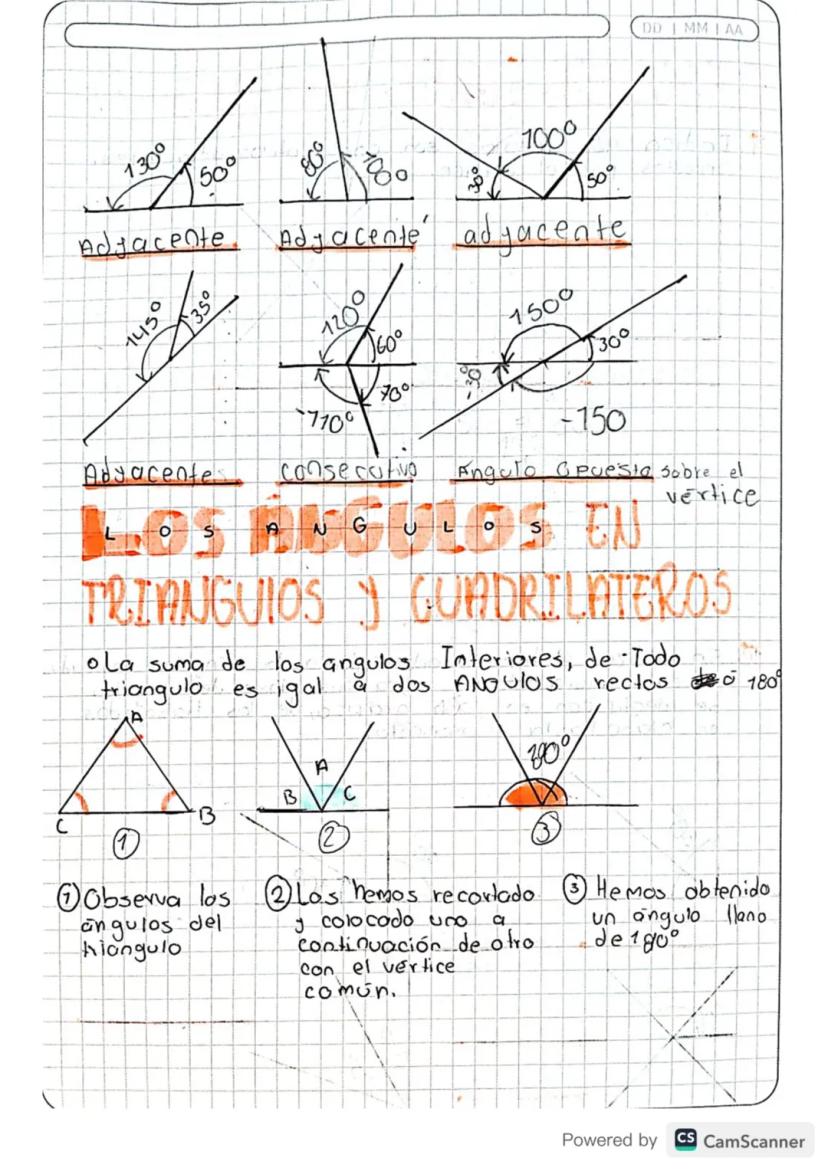 DD | MM | AA
130° 50° 80° 100° 30° 100° 50°
Adyacente Adyacente adyacente
145° 35° 120° 60° 70° -110° 150° 30° -30° -150
Adyacente consecutivo Angulo opuesta sobre el
vértice
LOS ÁNGULOS EN
LOS ANGULOS
TRIANGUIOS Y CUADRILATEROS
La suma de los angulos Interiores, de Todo
triangulo es igal a dos ANGULOS rectos ó 180°
A
C B
1
A
B C
2
180°
3
1 Observa los
ángulos del
triangulo
2 Los hemos recortado
y colocado uno a
continuación de otro
con el vértice
común.
3 Hemos obtenido
un ángulo llano
de 180°
Powered by CS CamScanner